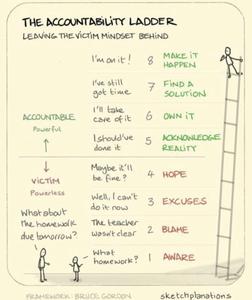 THE ACCOUNTABILITY LADDER
LEAVING THE VICTIM MINDSET BEHIND
I'm on it! 8 MAKE IT HAPPEN
I've still got time 7 FIND A SOLUTION
ACCOUNTABLE
Powerful
I'll take care of it 6 OWN IT
I should've done it 5 ACKNOWLEDGE REALITY
VICTIM
Powerless
Maybe it'll be fine? 4 HOPE
Well, I can't do it now 3 EXCUSES
The teacher wasn't clear 2 BLAME
What homework? 1 AWARE
What about the homework due tomorrow?
FRAMEWORK: BRUCE GORDON
sketchplanations